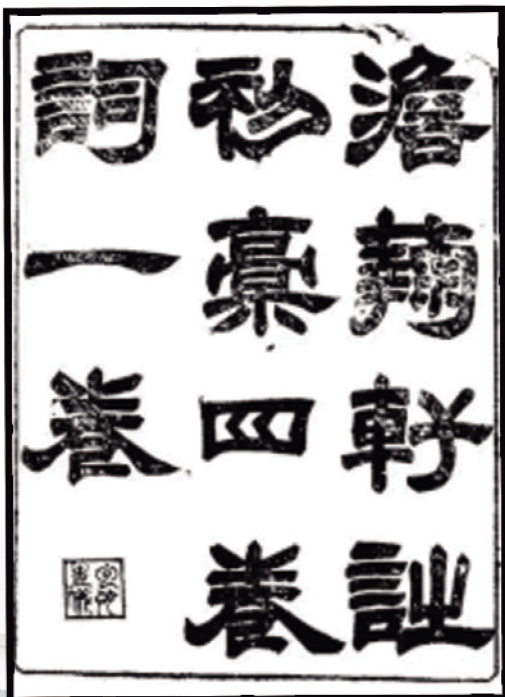 澹蘜軒詩
初稾四卷
詞一卷